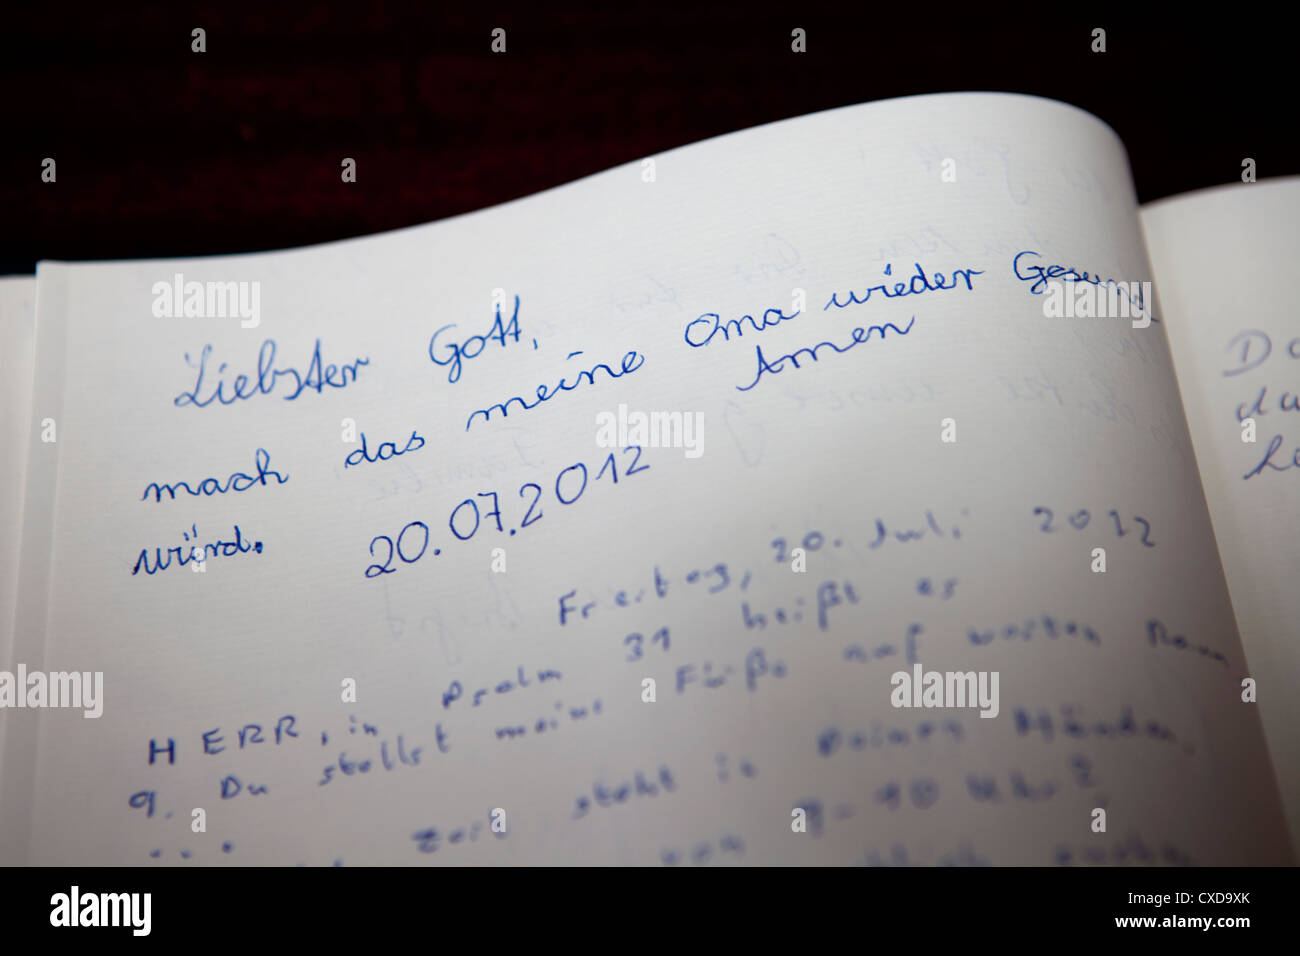 Liebster Gott,
mach das meine Oma wieder Gesund
würd. Amen
20.07.2012
Freitag, 20. Juli 2012
HERR, in Psalm 31 heißt es
9. Du stellst meine Füße auf weiten Raum
... Zeit steht in Deinen Händen.
von 9-10 Uhr?
a alamy stock photo
Image ID: CXD9XK
www.alamy.com